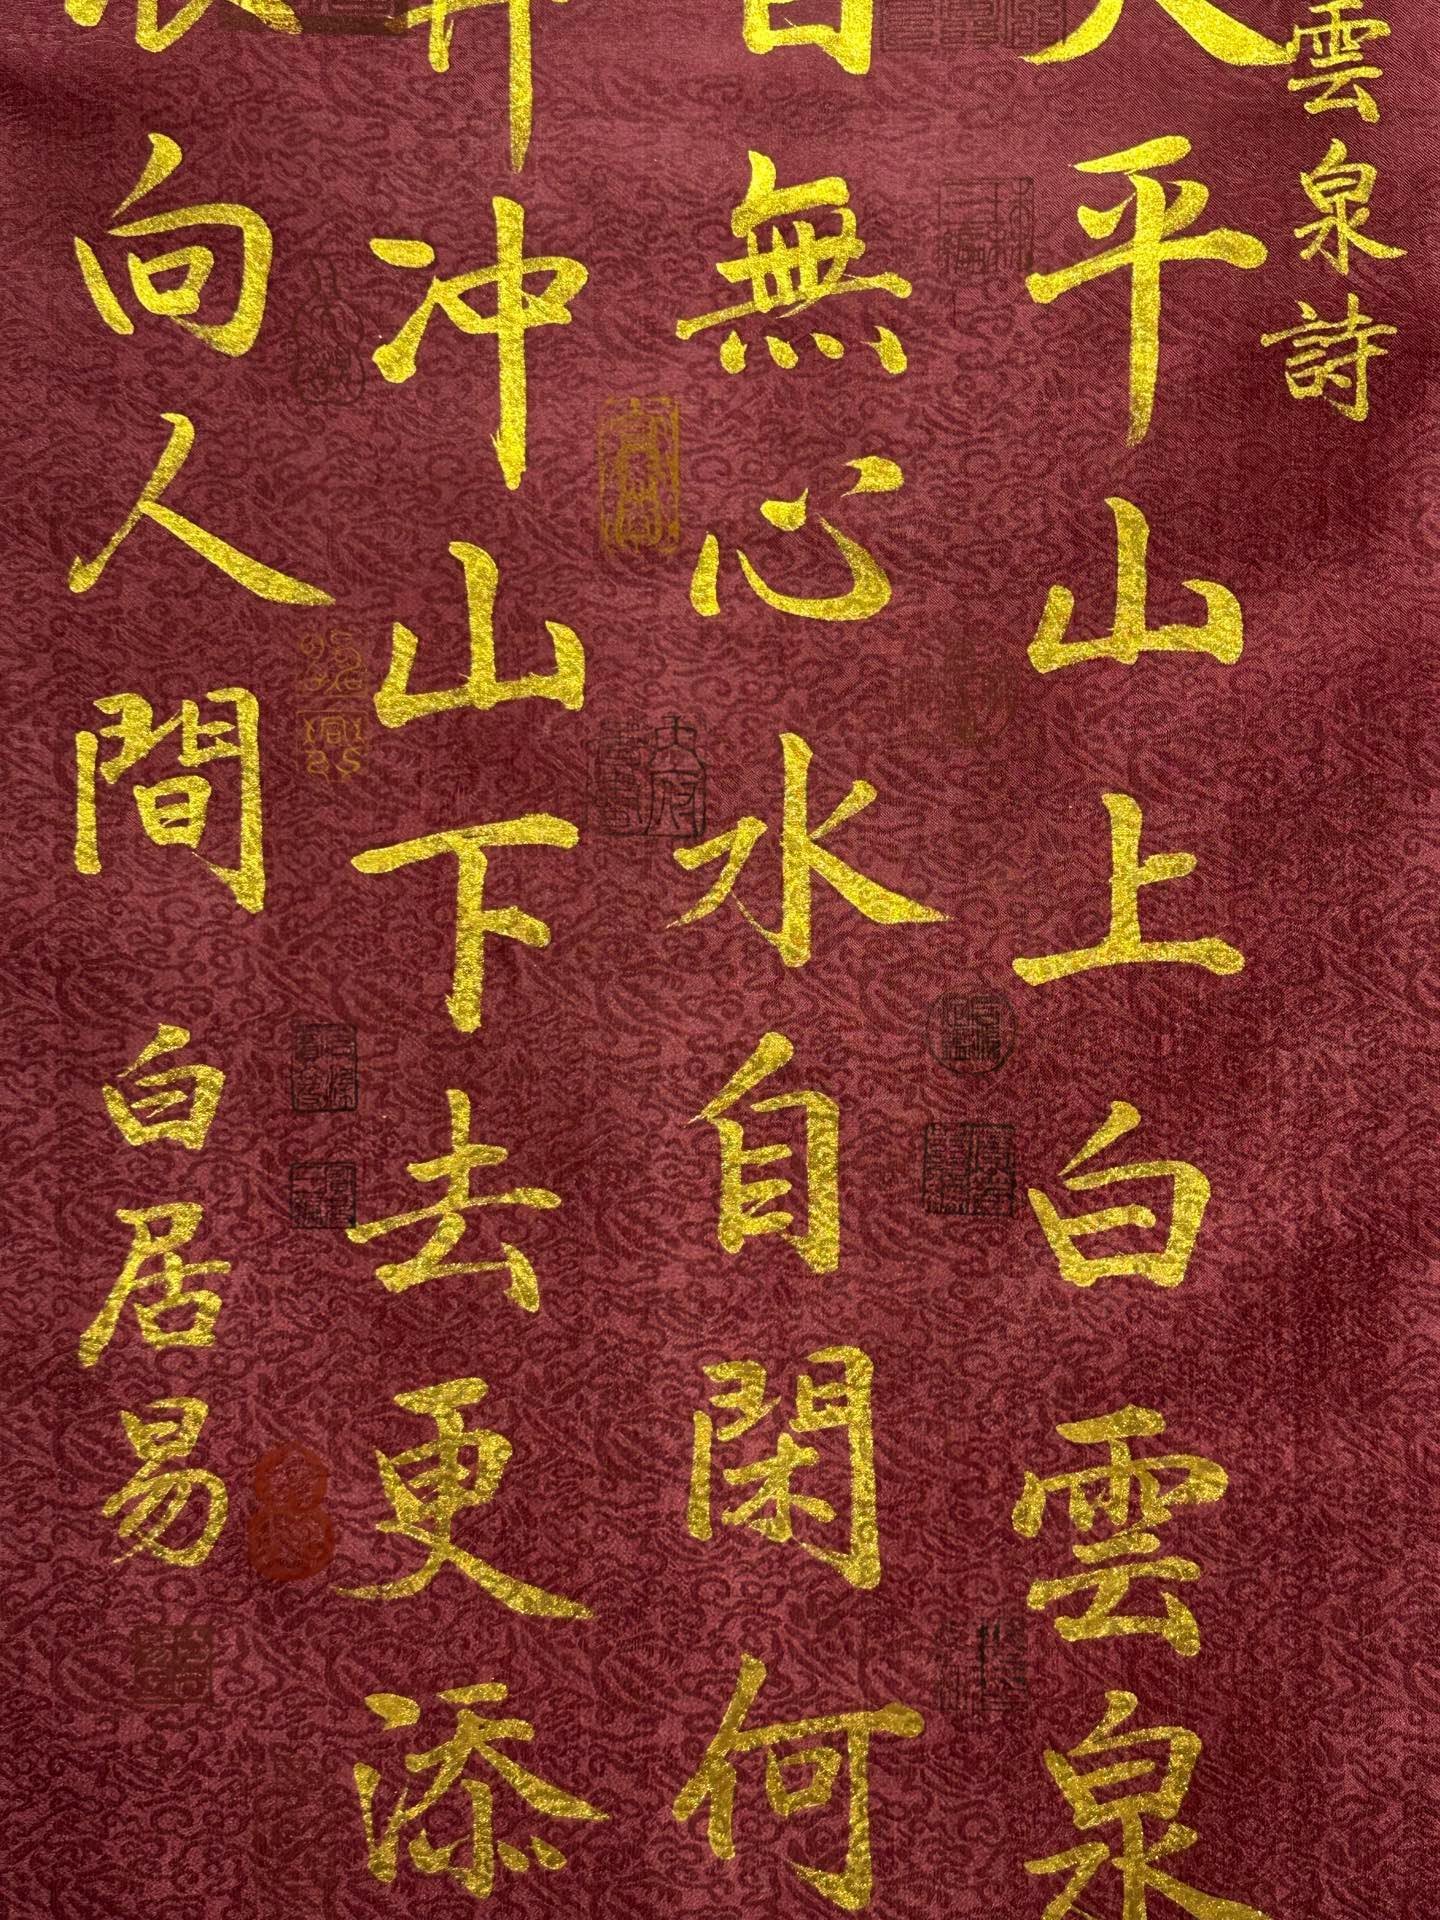 雲泉詩
天平山上白雲泉
自無心水自閑何
奔冲山下去更添
浪向人間
白居易